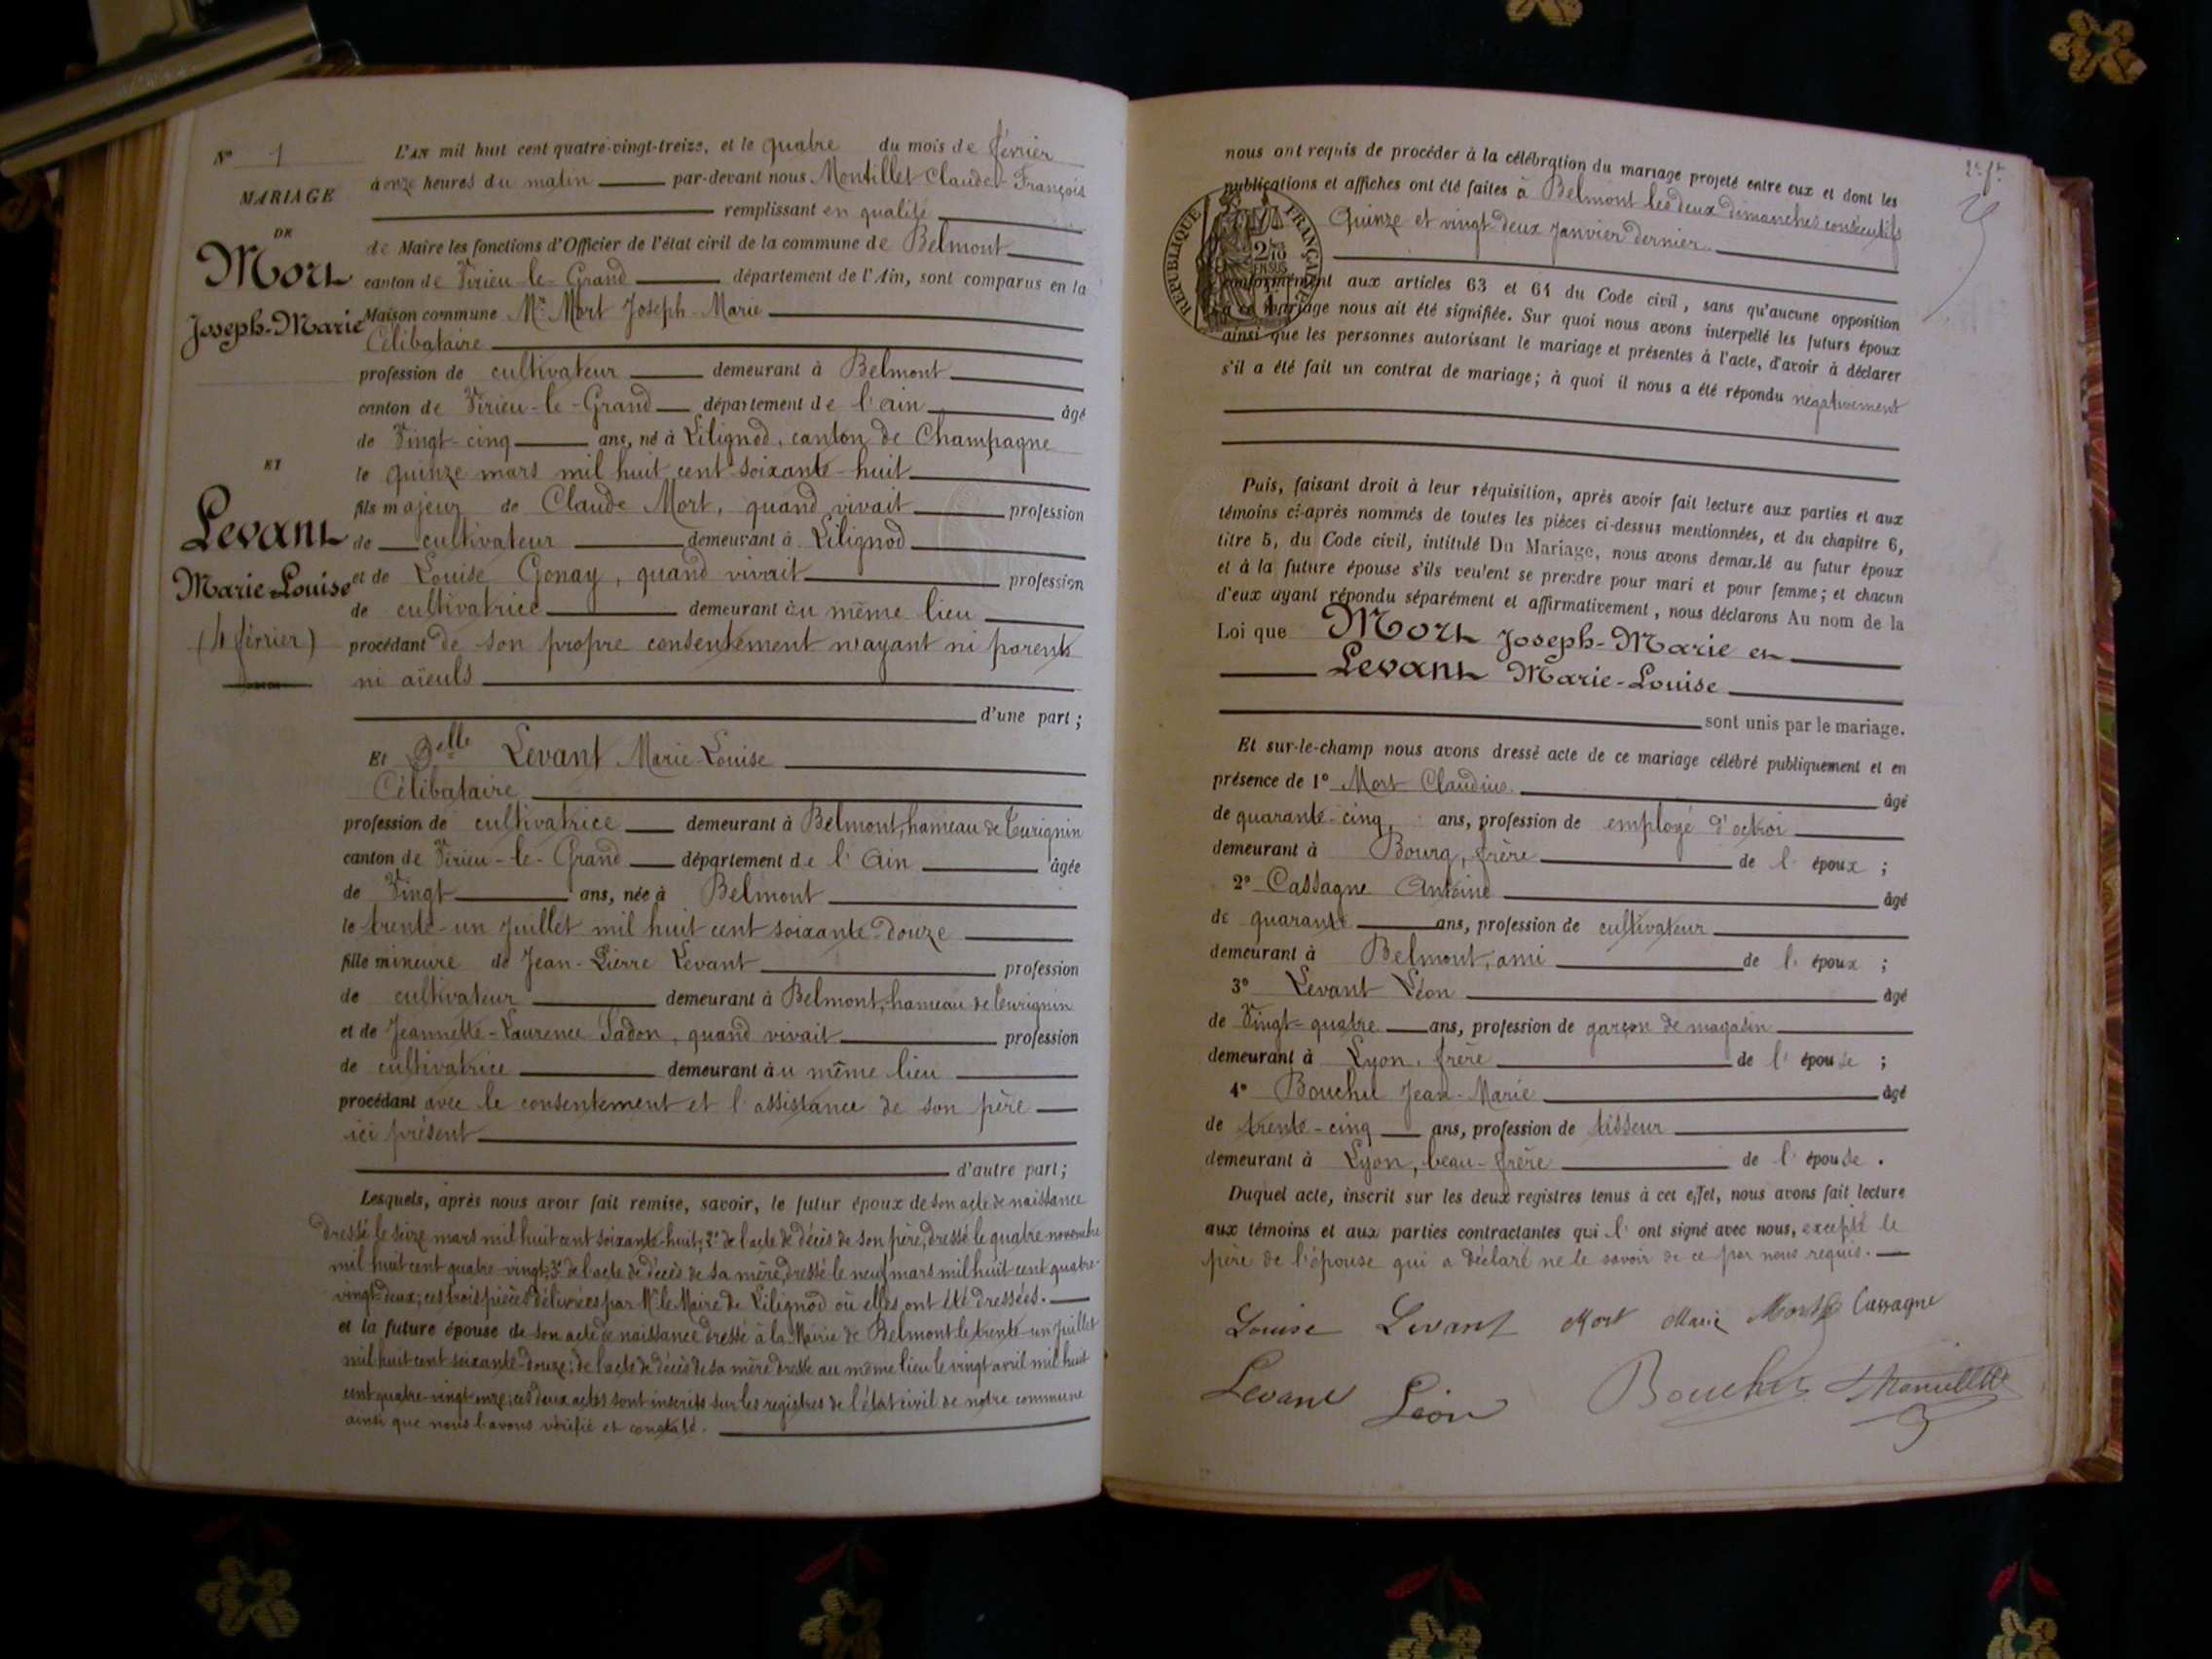 N° 1
MARIAGE
DE
Mort
Joseph-Marie
ET
Levant
Marie-Louise
(4 février)
L'AN mil huit cent quatre-vingt-treize, et le quatre du mois de février
à onze heures du matin par-devant nous Montillet Claude-François
remplissant en qualité
de Maire les fonctions d'Officier de l'état civil de la commune de Belmont
canton de Virieu-le-Grand département de l'Ain, sont comparus en la
Maison commune Mr. Mort Joseph-Marie
Célibataire
profession de cultivateur demeurant à Belmont
canton de Virieu-le-Grand département de l'Ain âgé
de Vingt-cinq ans, né à Lilignod, canton de Champagne
le quinze mars mil huit cent soixante-huit
fils majeur de Claude Mort, quand vivait profession
de cultivateur demeurant à Lilignod
et de Louise Gonay, quand vivait profession
de cultivatrice demeurant au même lieu
procédant de son propre consentement n'ayant ni parents
ni aïeuls
d'une part ;
Et Delle Levant Marie-Louise
Célibataire
profession de cultivatrice demeurant à Belmont, hameau de Eurignin
canton de Virieu-le-Grand département de l'Ain âgée
de Vingt ans, née à Belmont
le trente-un juillet mil huit cent soixante-douze
fille mineure de Jean-Pierre Levant profession
de cultivateur demeurant à Belmont, hameau de Eurignin
et de Jeannette-Laurence Sadon, quand vivait profession
de cultivatrice demeurant au même lieu
procédant avec le consentement et l'assistance de son père
ici présent
d'autre part ;
Lesquels, après nous avoir fait remise, savoir, le futur époux de son acte de naissance
dressé le seize mars mil huit cent soixante-huit; 2° de l'acte de décès de son père, dressé le quatre novembre
mil huit cent quatre-vingt; 3° de l'acte de décès de sa mère, dressé le neuf mars mil huit cent quatre-
vingt-deux; ces trois pièces délivrées par Mr le Maire de Lilignod où elles ont été dressées.
et la future épouse de son acte de naissance dressé à la Mairie de Belmont le trente-un juillet
mil huit cent soixante-douze; de l'acte de décès de sa mère dressé au même lieu le vingt avril mil huit
cent quatre-vingt-onze; ces deux actes sont inscrits sur les registres de l'état civil de notre commune
ainsi que nous l'avons vérifié et constaté.
2e ft
nous ont requis de procéder à la célébration du mariage projeté entre eux et dont les
publications et affiches ont été faites à Belmont les deux dimanches consécutifs
quinze et vingt-deux janvier dernier
RÉPUBLIQUE FRANÇAISE
2/10
EN SUS
conformément aux articles 63 et 64 du Code civil, sans qu'aucune opposition
à ce mariage nous ait été signifiée. Sur quoi nous avons interpellé les futurs époux
ainsi que les personnes autorisant le mariage et présentes à l'acte, d'avoir à déclarer
s'il a été fait un contrat de mariage; à quoi il nous a été répondu négativement
Puis, faisant droit à leur réquisition, après avoir fait lecture aux parties et aux
témoins ci-après nommés de toutes les pièces ci-dessus mentionnées, et du chapitre 6,
titre 5, du Code civil, intitulé Du Mariage, nous avons demandé au futur époux
et à la future épouse s'ils veulent se prendre pour mari et pour femme; et chacun
d'eux ayant répondu séparément et affirmativement, nous déclarons Au nom de la
Loi que Mort Joseph-Marie et
Levant Marie-Louise
sont unis par le mariage.
Et sur-le-champ nous avons dressé acte de ce mariage célébré publiquement et en
présence de 1° Mort Claudius âgé
de quarante-cinq ans, profession de employé d'octroi
demeurant à Bourg, frère de l'époux ;
2° Cassagne Antoine âgé
de quarante ans, profession de cultivateur
demeurant à Belmont, ami de l'époux ;
3° Levant Léon âgé
de Vingt-quatre ans, profession de garçon de magasin
demeurant à Lyon, frère de l'épouse ;
4° Bouchu Jean-Marie âgé
de trente-cinq ans, profession de tisseur
demeurant à Lyon, beau-frère de l'épouse.
Duquel acte, inscrit sur les deux registres tenus à cet effet, nous avons fait lecture
aux témoins et aux parties contractantes qui l'ont signé avec nous, excepté le
père de l'épouse qui a déclaré ne le savoir de ce par nous requis.
Louise Levant Mort Marie Mort Cassagne
Levant Léon Bouchu Montillet